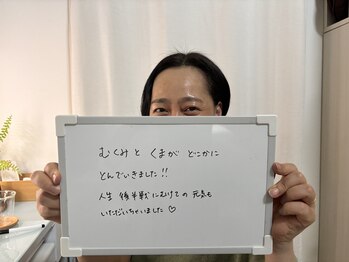 むくみと くまが どこかに
とんでいきました!!
人生 後半戦にむけての 元気も
いただいちゃいました♡